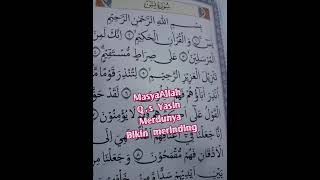 سُورَةُ يٰسٓ
بِسْمِ اللّٰهِ الرَّحْمٰنِ الرَّحِيْمِ
يٰسٓ وَالْقُرْاٰنِ الْحَكِيْمِ اِنَّكَ لَمِنَ
الْمُرْسَلِيْنَ عَلٰى صِرَاطٍ مُّسْتَقِيْمٍ
تَنْزِيْلَ الْعَزِيْزِ الرَّحِيْمِ لِتُنْذِرَ قَوْمًا
MasyaAllah
Q.s Yasin
Merdunya
Bikin merinding
اُنْذِرَ اٰبَاۤؤُهُمْ لَقَدْ
الْقَوْلُ عَلٰٓى لَا يُؤْمِنُوْنَ
اِنَّا جَعَلْنَا
الْاَذْقَانِ فَهُمْ مُّقْمَحُوْنَ وَجَعَلْنَا
بَيْنِ اَيْدِيْهِمْ سَدًّا